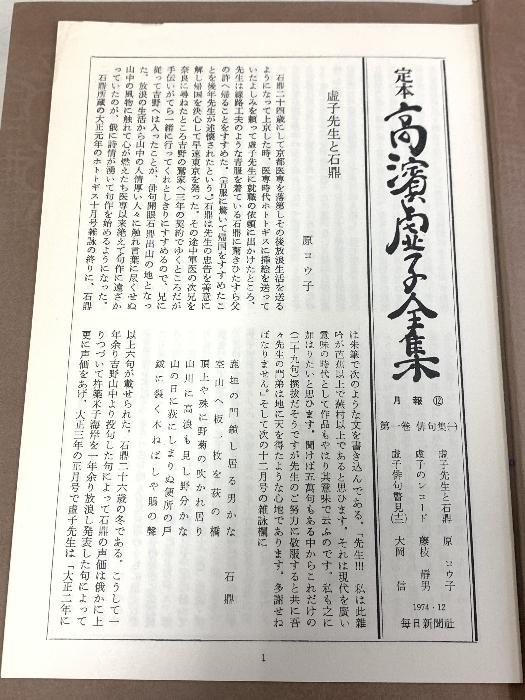 定本
高濱虚子全集
月報⑫
第一巻 俳句集㈠
虚子先生と石鼎 原 コウ子
虚子のレコード 藤枝 静男
虚子俳句瞥見(十二) 大岡 信
1974・12
毎日新聞社
虚子先生と石鼎
原 コウ子
石鼎二十四歳にして京都医専を落第しその後放浪生活を送る
ようになって上京した時、医専時代ホトトギスに挿絵を送って
いたよしみを頼って虚子先生に就職の依頼に出かけたところ、
先生は線路工夫のような青服を着ている石鼎に驚きひたすら父
の許へ帰ることをすすめた。（青服に驚いて帰国をすすめたこ
とを後年先生が述懐されたという。）石鼎は先生の忠告を善意に
解し帰国を決心して早速東京を発った。その途中軍医の次兄を
奈良に尋ねたところ吉野の鷲家へ三年の契約でゆくところだが
手伝いがてら一緒に行ってくれとしきりにすすめるので、兄に
従って吉野へは入ったことが、俳句開眼石鼎出山の地となっ
た。放浪の生活から山中の人情厚い人々に触れ言葉に尽くせぬ
山中の風物に触れて心が燃えたち医専以来絶えて句作に遠ざか
っていたのが、俄に詩情が湧いて句作を始めるようになった。
石鼎所蔵の大正元年のホトトギス十月号雑詠の終りに、石鼎
は朱筆で次のような文を書き込んである。「先生!!! 私は此雑
吟が芭蕉以上で蕪村以上であると思ひます。それは現代を廣い
意味の時代として作品もやはり其意味で云ふのです。私も之に
加はりたいと思ひます。聞けば五萬句もある中からこれだけの
（二十九句）撰抜だそうですが先生のご努力に敬服すると共に吾
々先生の門弟は地に天を得たような心地であります。多謝せね
ばなりません。」そして次の十二月号の雑詠欄に
鹿垣の門鎖し居る男かな 石鼎
空山へ板一枚を萩の橋
頂上や殊に野菊の吹かれ居り
山川に高浪も見し野分かな
山の日に萩にしまりぬ便所の戸
蔓に裂く木ねばしや鵙の聲
以上六句が載せられた。石鼎二十六歳の冬である。こうして一
年余り吉野山中より投句した句によって石鼎の声価は俄かに上
りつづいて杵築米子海岸を一年余り放浪し発表した句によって
更に声価をあげ、大正三年の正月号で虚子先生は「大正二年に
1